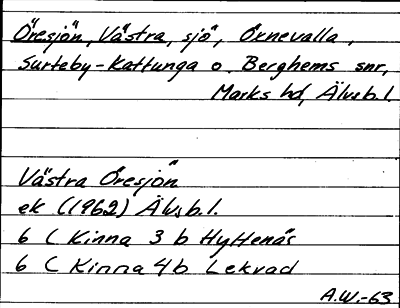 Öresjön, Västra, sjö, Örnevalla,
Surteby-Kattunga o. Berghems snr,
Marks hd, Älvsb.l.
Västra Öresjön
ek (1962) Älvsb.l.
6 C Kinna 3 b Hyttenäs
6 C Kinna 4b Lekvad
A.W.-63